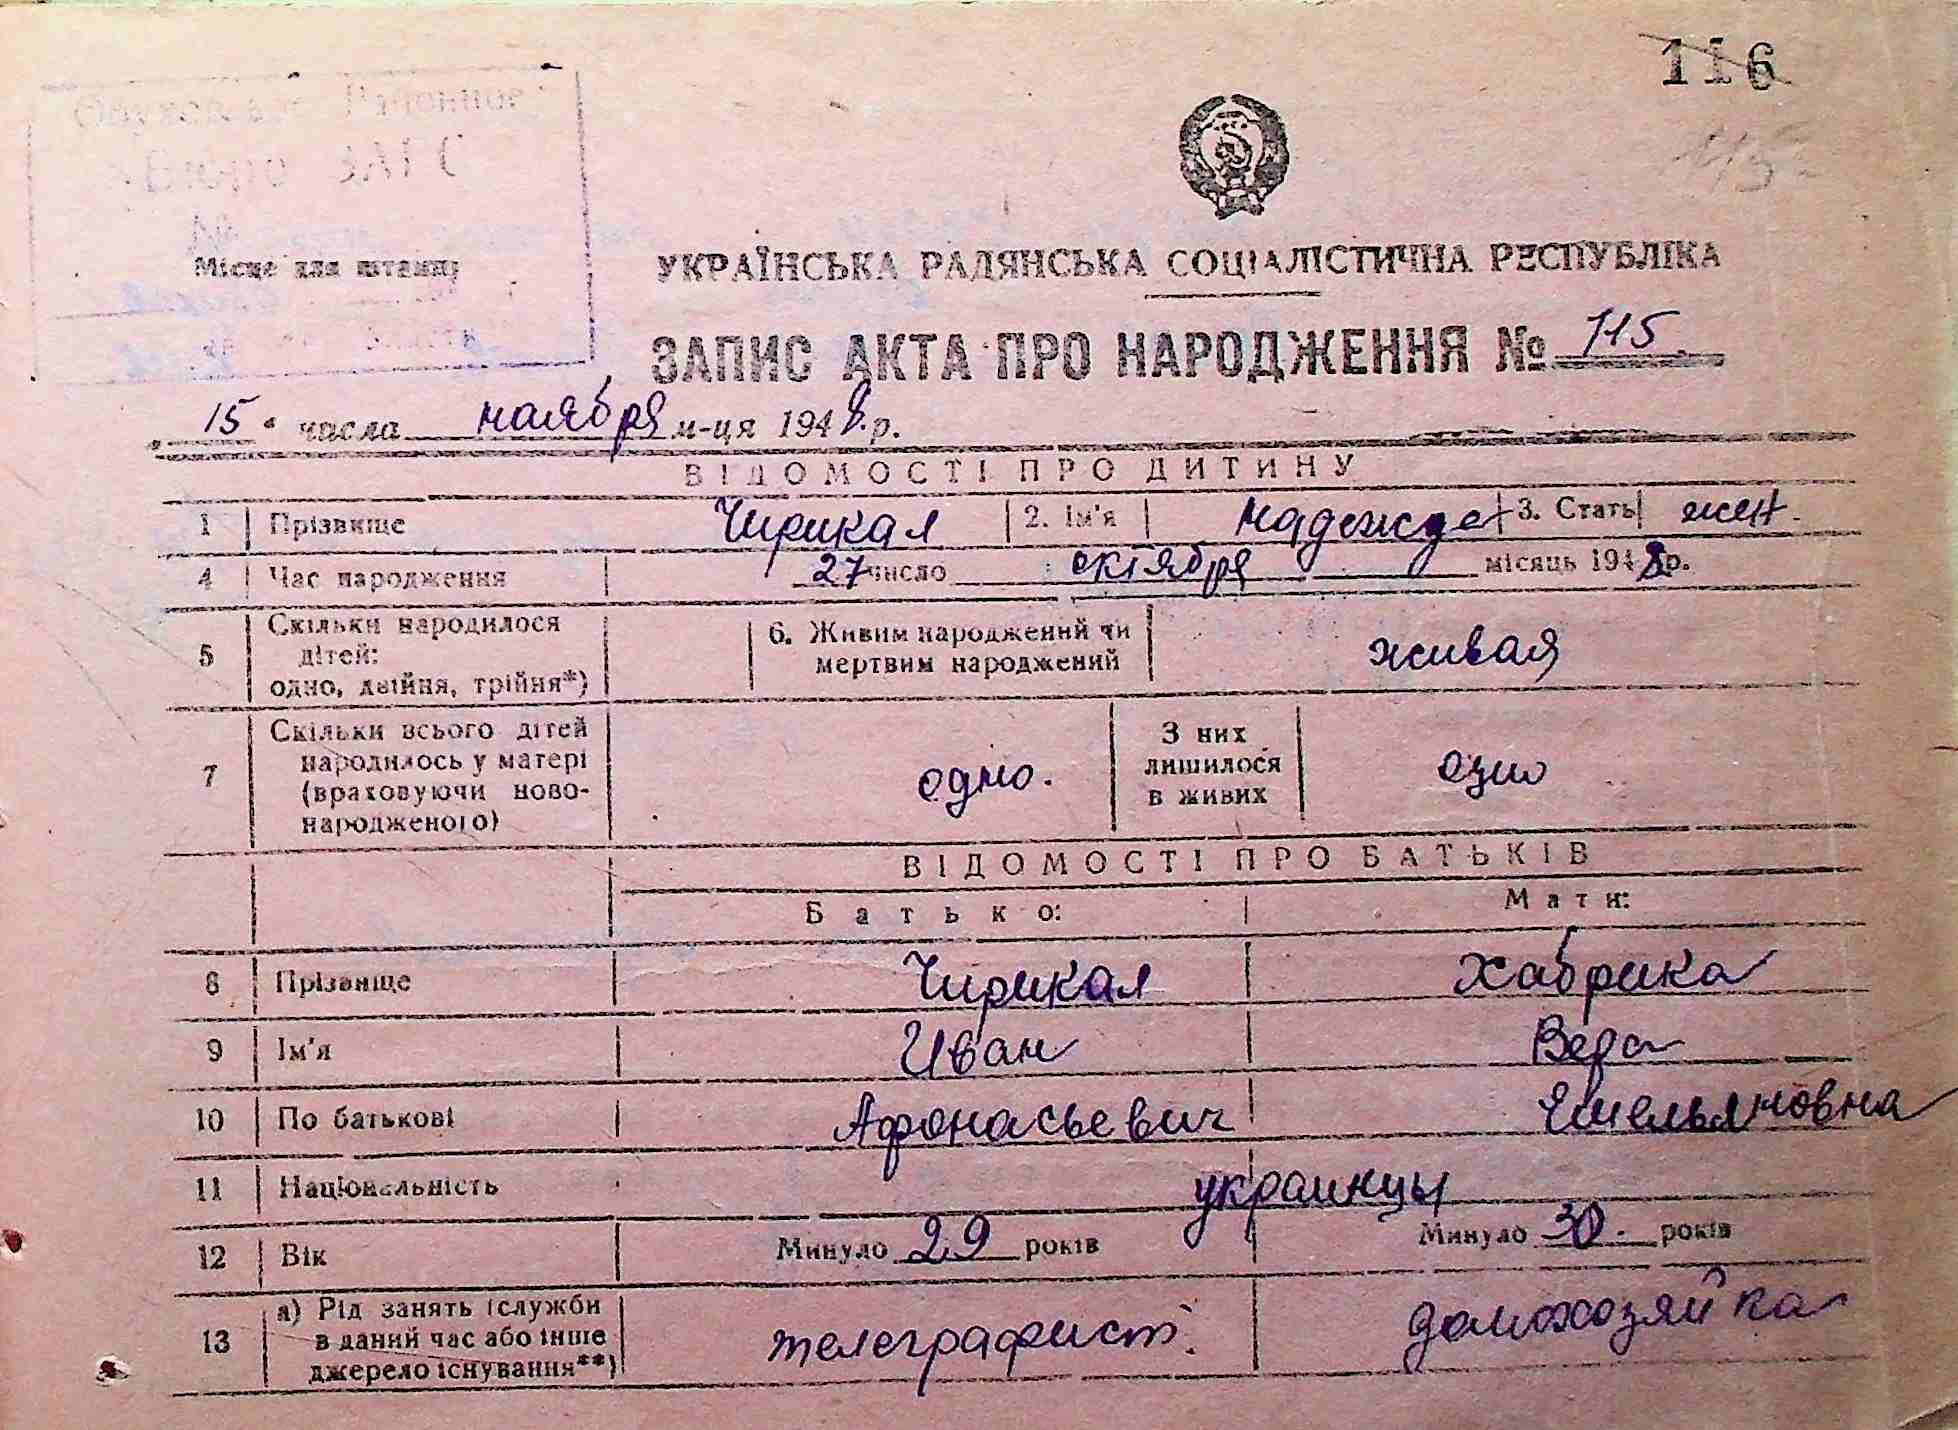 116
115
Районное
Бюро ЗАГС
Місце для штампу
УКРАЇНСЬКА РАДЯНСЬКА СОЦІАЛІСТИЧНА РЕСПУБЛІКА
ЗАПИС АКТА ПРО НАРОДЖЕННЯ № 115
„15“ числа ноября м-ця 1948 р.
ВІДОМОСТІ ПРО ДИТИНУ
1 Прізвище Чирикал 2. Ім'я Надежда 3. Стать жен.
4 Час народження 27 число октября місяць 1948 р.
5 Скільки народилося
дітей:
одно, двійня, трійня*)
6. Живим народжений чи
мертвим народжений
живая
7 Скільки всього дітей
народилось у матері
(враховуючи ново-
народженого)
одно.
З них
лишилося
в живих
одно
ВІДОМОСТІ ПРО БАТЬКІВ
Батько: Мати:
8 Прізвище Чирикал Хабрика
9 Ім'я Иван Вера
10 По батькові Афонасьевич Емельяновна
11 Національність украинцы
12 Вік Минуло 29 років Минуло 30. років
13 а) Рід занять (служби
в даний час або інше
джерело існування**)
телеграфист. домохозяйка